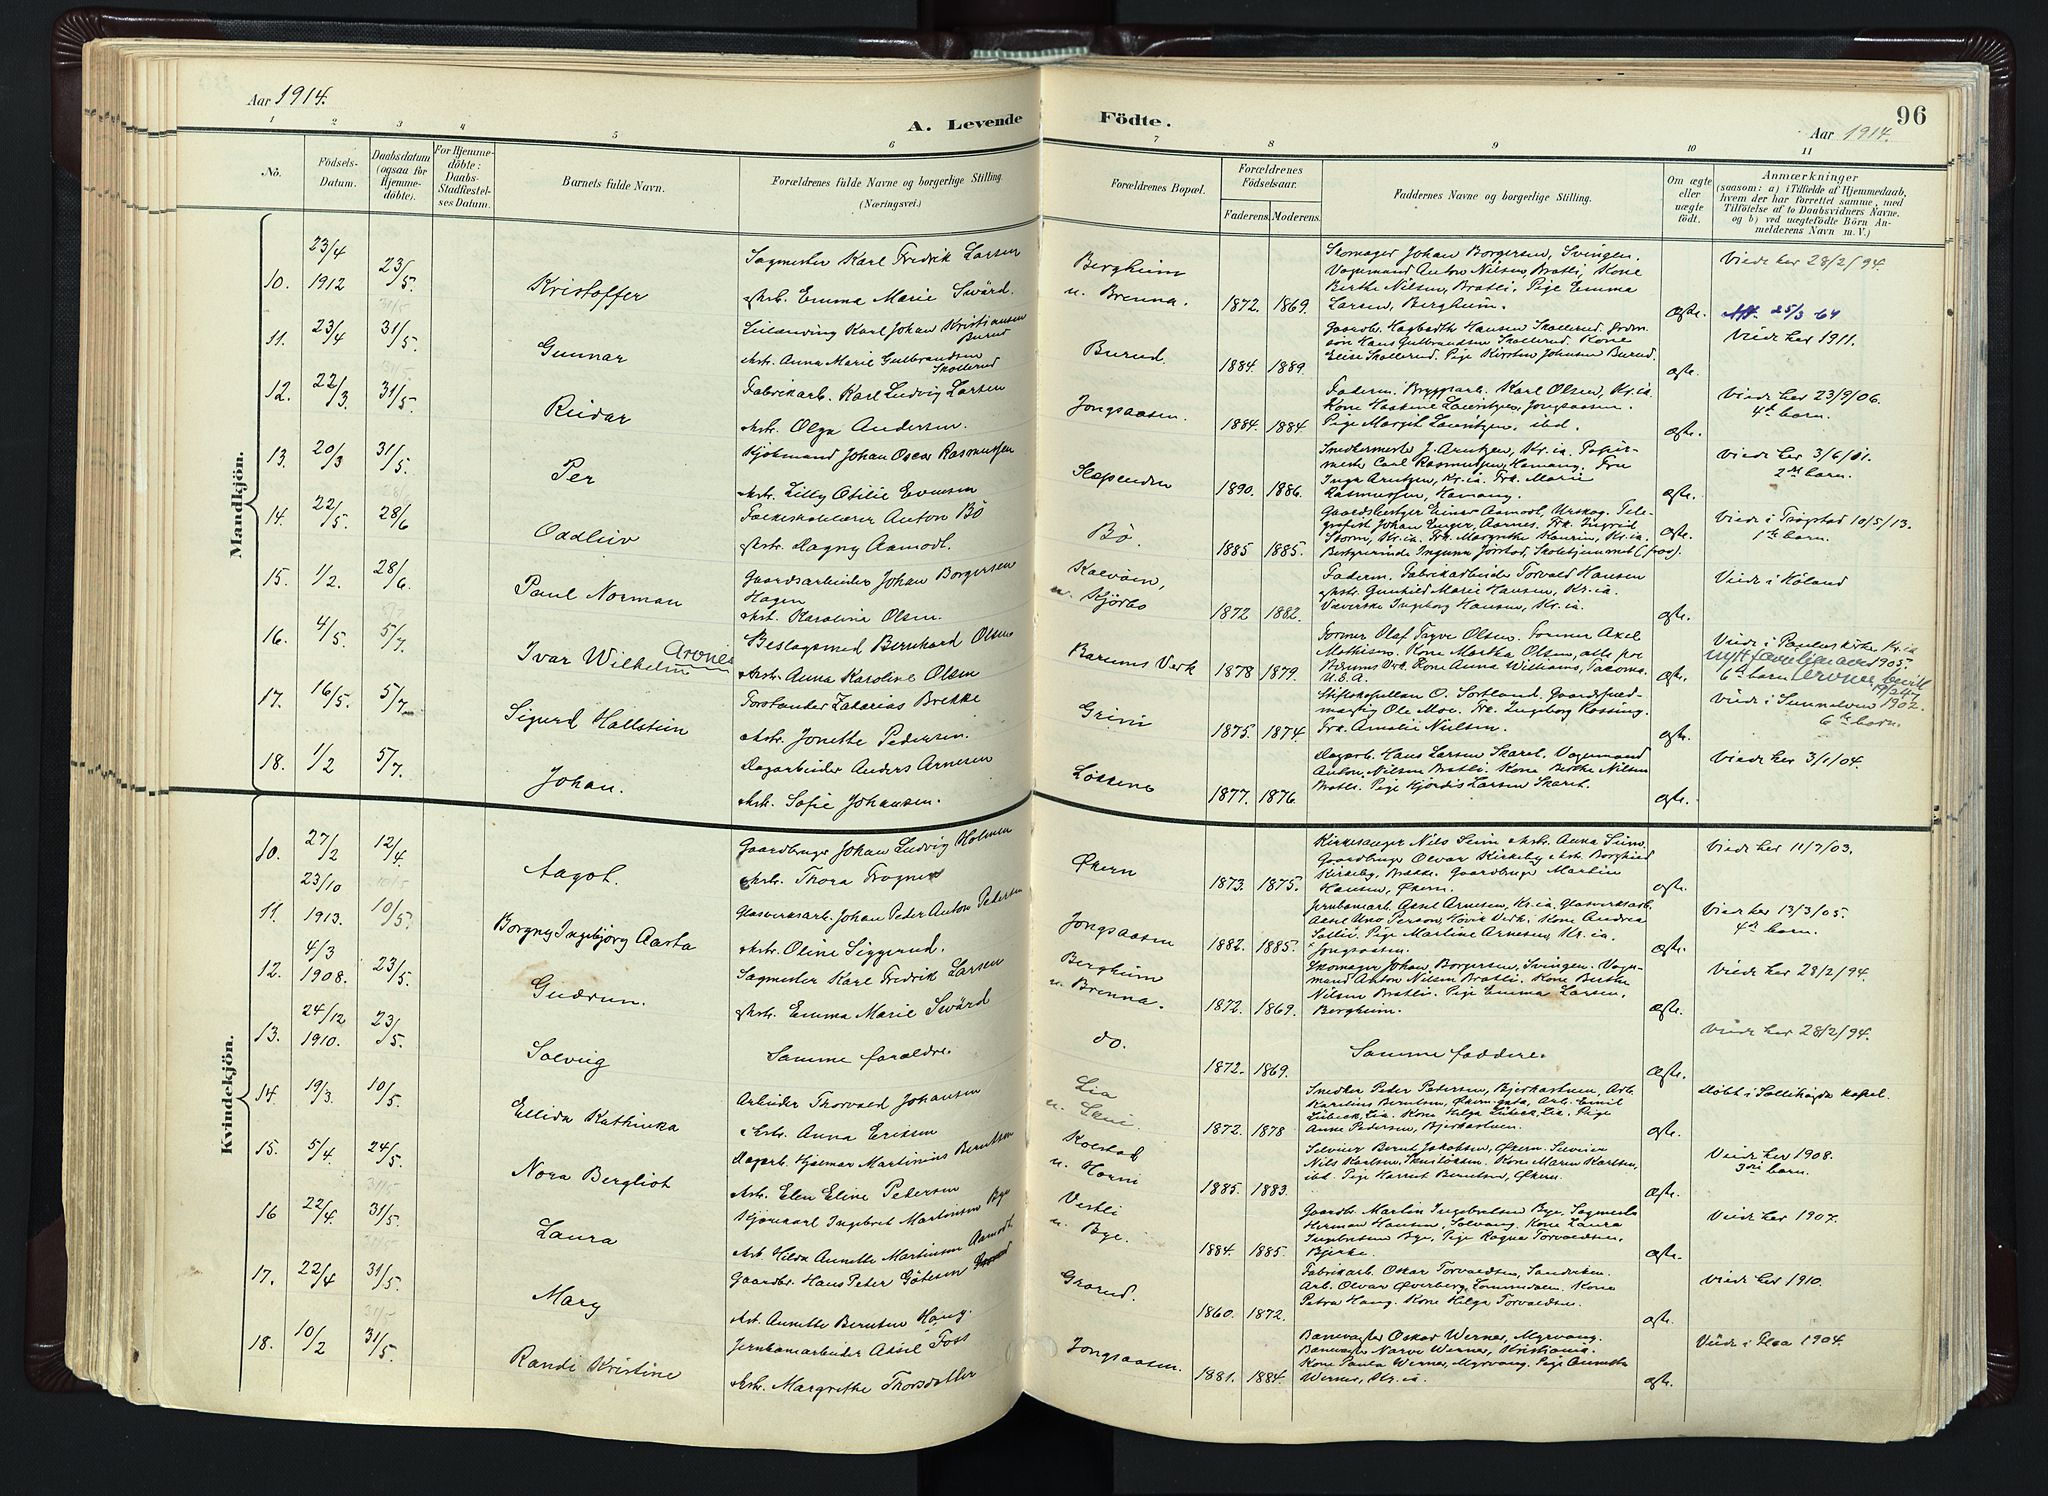 Aar 1914.
A. Levende
Födte.
96
Aar 1914.
1 2 3 4 5 6 7 8 9 10 11
No.
Födsels-
Datum.
Daabsdatum
(ogsaa for
Hjemme-
döbte).
For Hjemme-
döbte:
Daabs-
Stadfæstel-
ses Datum.
Barnets fulde Navn.
Forældrenes fulde Navne og borgerlige Stilling.
(Næringsvei.)
Forældrenes Bopæl.
Forældrenes
Födselsaar.
Faderens. Moderens.
Faddernes Navne og borgerlige Stilling.
Om ægte
eller
uægte
födt.
Anmærkninger
(saasom: a) i Tilfælde af Hjemmedaab,
hvem der har forrettet samme, med
Tilföielse af to Daabsvidners Navne,
og b) ved uægtefödte Börn An-
melderens Navn m. V.)
Mandkjön.
10. 23/4 1912 23/5 Kristoffer
Sagmester Karl Fredrik Larsen
Hstr. Emma Marie Swärd.
Bergheim
u. Brenna.
1872 1869.
Skomager Johan Borgersen, Svingen.
Vognmand Anton Nilsen, Bratli, Kone
Birthe Nilsen, Bratli, Pige Emma
Larsen, Bergheim.
Ægte.
Viede her 28/2/94.
25/3 64
11. 23/4 31/5 Gunnar
Karl Johan Kristiansen
Burud
Hstr. Anna Marie Gulbrandsen
Skollerud
Burud.
1884. 1889.
Gaardb. Hagbarth Hansen Skollerud.
Hans Gulbrandsen Skollerud. Kone
Elise Skollerud. Pige Kirsten Johnsen Burud.
Ægte.
Viede her 1911.
12. 22/3. 31/5. Reidar
Fabrikarb. Karl Ludvig Larsen
Hstr. Olga Andersen.
Jongsaasen.
1884. 1884
Faderen. Bryggarb. Karl Olsen, Kr.ia.
Kone Lauritzen, Jongsaasen.
Pige Margit Lauritzen, ibd.
Ægte.
Viede her 23/9/06.
4d barn.
13. 20/3 31/5. Per
Kjöbmand Johan Oscar Rasmussen
Hstr. Lilly Otilie Evensen
Slependen
1890. 1886.
Snedkermester J. Arntzen, Kr.ia.
Carl Rasmussen, Hamang. Fru
Inga Arntzen, Kr.ia. Frk. Marie
Rasmussen, Hamang.
Ægte
Viede her 3/6/11.
2det barn.
14. 22/5. 28/6 Oddleiv
Folkeskolelærer Anton Bö
Hstr. Dagny Aamodt.
Bö.
1885 1885.
Gaardbestyrer Einar Aamodt, Urskog. Tele-
grafist Johan Enger, Aarnes. Frk. Ingrid
Storm, Kr.ia. Frk. Margrethe Kaurin, Kr.ia.
Bestyrerinde Ingunn Jörstad, Skolehjemmet
Ægte.
Viede i Trögstad 10/5/13.
1te barn.
15. 1/2. 28/6. Paul Norman
Gaardsarbeider Johan Borgersen
Hagen
Hstr. Karoline Olsen.
Kalvöen,
u. Kjörbo
1872 1882.
Faderen. Fabrikarbeider Torvald Hansen
Hstr. Gunhild Marie Hansen, Kr.ia.
Væverske Ingeborg Hansen, Kr.ia.
Ægte.
Viede i Höland
16. 4/5. 5/7. Ivar Wilhelm Arones
Beslagsmed Bernhard Olsen
Hstr. Anna Karoline Olsen
Bærums Verk
1878 1879.
Former Olaf Tryve Olsen. Former Axel
Mathisen. Kone Martha Olsen, alle paa
Bærums Verk. Kone Anna Williams, Tacoma
U.S.A.
Ægte.
Viede i Pauluskirke Kr.ia
1905.
6te barn.
17. 16/5. 5/7. Sigurd Hallstein
Forstander Zakarias Brekke
Hstr. Jonette Pedersen.
Grini
1875. 1874.
Stiftskapellan O. Sortland. Gaardsfuld-
mægtig Ole Moe. Frk. Ingeborg Rossing.
Frk. Amalie Nielsen.
Ægte.
Viede i Sunnelven 1902.
6te barn.
18. 1/2 5/7. Johan.
Dagarbeider Anders Arnesen
Hstr. Sofie Johansen.
Lökkene
1877. 1876.
Dagarb. Hans Larsen Skaret. Vognmand
Anton Nilsen Bratli. Kone Birthe Nilsen
Bratli. Pige Hjördis Larsen Skaret.
Ægte.
Viede her 3/1/04.
Kvindekjön.
10. 27/2 12/4. Aagot.
Gaardbruger Johan Ludvig Holmen
Hstr. Thora Frogner
Økern
1873. 1875.
Kirkesanger Nils Seim Hstr. Anna Seim.
Gaardbruger Olvar Kirkeby Hstr. Borghild
Kirkeby. Gaardbruger Martin
Hansen, Økern.
Ægte.
Viede her 11/7/03.
11. 23/10 1913. 10/5. Borgny Ingebjörg Aasta
Glasverksarb. Johan Peder Anton Pedersen
Hstr. Oline Siggerud.
Jongsaasen
1882. 1885.
Jernbanearb. Aksel Arnesen, Kr.ia. Glasverksarb.
Aksel Uno Person, Hövik Verk. Kone Andrea
Sollie. Pige Martine Arnesen, Kr.ia.
Jongsaasen.
Ægte.
Viede her 13/3/05.
4de barn.
12. 4/3 1908. 23/5. Gudrun.
Sagmester Karl Fredrik Larsen
Hstr. Emma Marie Swärd
Bergheim
u. Brenna.
1872. 1869.
Skomager Johan Borgersen, Svingen. Vogn-
mand Anton Nilsen Bratli. Kone Birthe
Nilsen Bratli. Pige Emma Larsen,
Bergheim.
Ægte.
Viede her 28/2/94.
13. 24/12 1910. 23/5. Solveig
Samme forældre.
do.
1872. 1869.
Samme faddere.
Ægte.
Viede her 28/2/94.
14. 19/3. 10/5. Ellida Kathinka
Arbeider Thorvald Johansen
Hstr. Anna Eriksen
Lia
1872. 1878
Snedker Peder Pedersen, Bjerkastuen, Arb.
Karelius Berntsen, Økern, Arb. Emil
Lübeck, Lia. Kone Helga Lübeck, Lia. Pige
Anne Pedersen, Bjerkastuen.
Ægte.
Döbt i Sollihögda Kapel.
15. 5/4. 24/5. Nora Bergliot
Dagarb. Hjalmar Martinius Berntsen
Hstr. Elen Eline Pedersen
Kolstad
u. Horni
1885. 1883.
Bernt Jakobsen, Økern.
Nils Karlsen, Kone Maren Karlsen,
ibd. Pige Harriet Berntsen, Økern.
Ægte.
Viede her 1908.
3die barn.
16 22/4. 31/5. Laura
Ingebret Martinsen Bye
Hstr. Hilda Annette Martinsen Aamodt
Vestli
u. Bye.
1884. 1885.
Gaardb. Martin Ingebretsen Bye, Sagmester
Herman Hansen, Solvang. Kone Laura
Ingebretsen Bye, Pige Ragna Torvaldsen,
Bjerke.
Ægte.
Viede her 1907.
17. 22/4 31/5. Mary
Gaardbr. Hans Peter Götesen
Hstr. Annette Berntsen Haug.
Gaarud.
1860. 1872.
Fabrikarb. Oskar Torvaldsen, Sandviken.
Arb. Olvar Øverberg, Lommedalen. Kone
Petra Haug. Kone Helga Torvaldsen.
Ægte.
Viede her 1910.
18. 10/2 31/5. Randi Kristine
Jernbanearbeider Aksel Foss
Hstr. Margrethe Thorsdatter
Jongsaasen.
1881. 1884.
Banevogter Oskar Werner, Myrvang.
Banevogter Narve Werner, Kristiania.
Kone Paula Werner, Myrvang. Pige Annette
Werner, Kr.ia.
Ægte.
Viede i 1904.